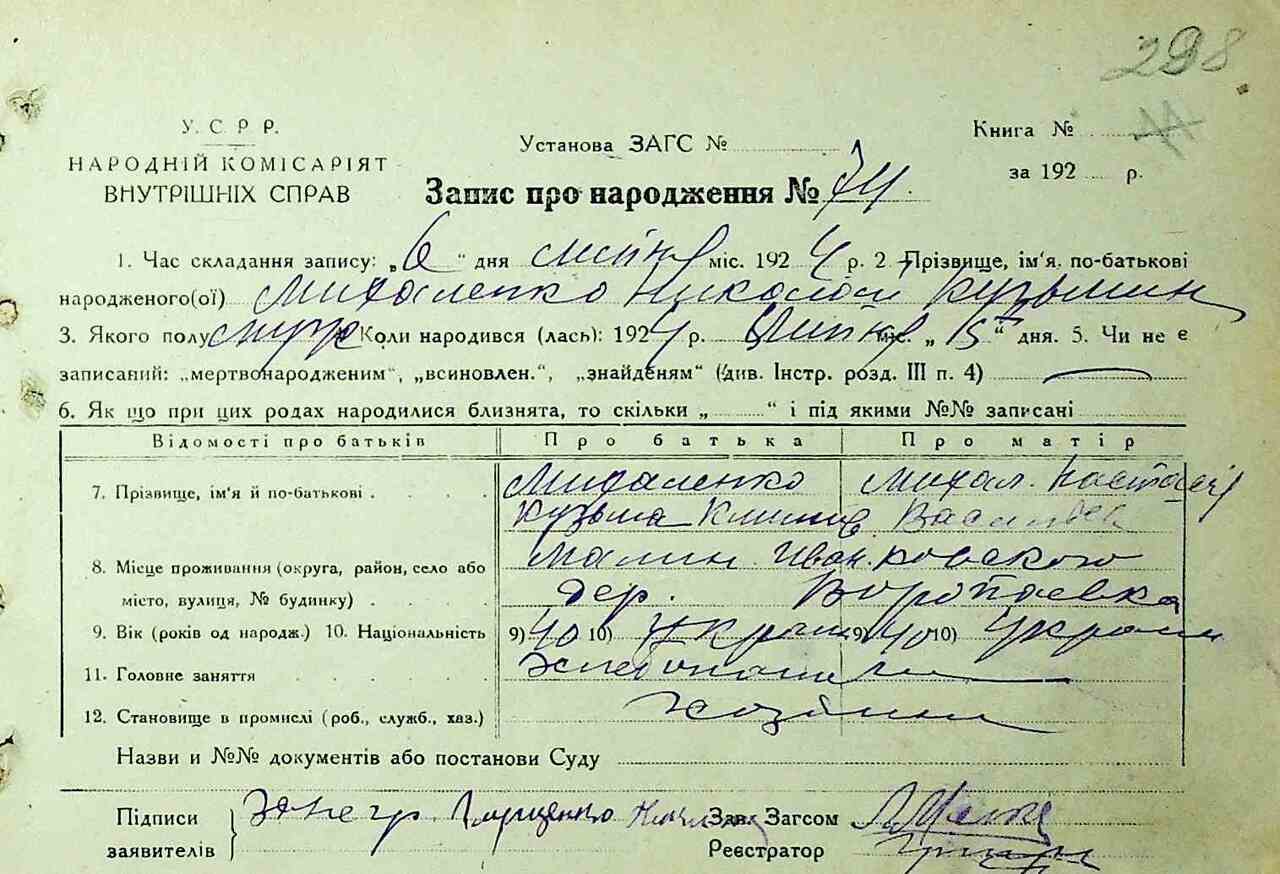 298
У. С. Р. Р.
НАРОДНІЙ КОМІСАРІЯТ
ВНУТРІШНІХ СПРАВ
Установа ЗАГС №
Книга №
за 192 р.
Запис про народження № 74.
1. Час складання запису: „6“ дня міс. 1924 р. 2 Прізвище, ім'я. по-батькові
народженого(ої) Михаленко Николай Кузьмин
3. Якого полу муж Коли народився (лась): 1924 р. міс. „15“ дня. 5. Чи не є
записаний: „мертвонародженим“, „всиновлен.“, „знайденям“ (див. Інстр. розд. III п. 4)
6. Як що при цих родах народилися близнята, то скільки „ “ і під якими №№ записані
Відомості про батьків Про батька Про матір
7. Прізвище, ім'я й по-батькові Михаленко Михал. Настасія
Кузьма Климов Васильев
8. Місце проживання (округа, район, село або Малин. Иванковского
місто, вулиця, № будинку) дер. Воропаевка
9. Вік (років од народж.) 10. Національність 9) 40 10) Украин 9) 40 10) Украин
11. Головне заняття Хлебопашец
12. Становище в промислі (роб., служб., хаз.) Хозяин
Назви и №№ документів або постанови Суду
Підписи
заявителів
За негр.
Зав. Загсом
Реєстратор